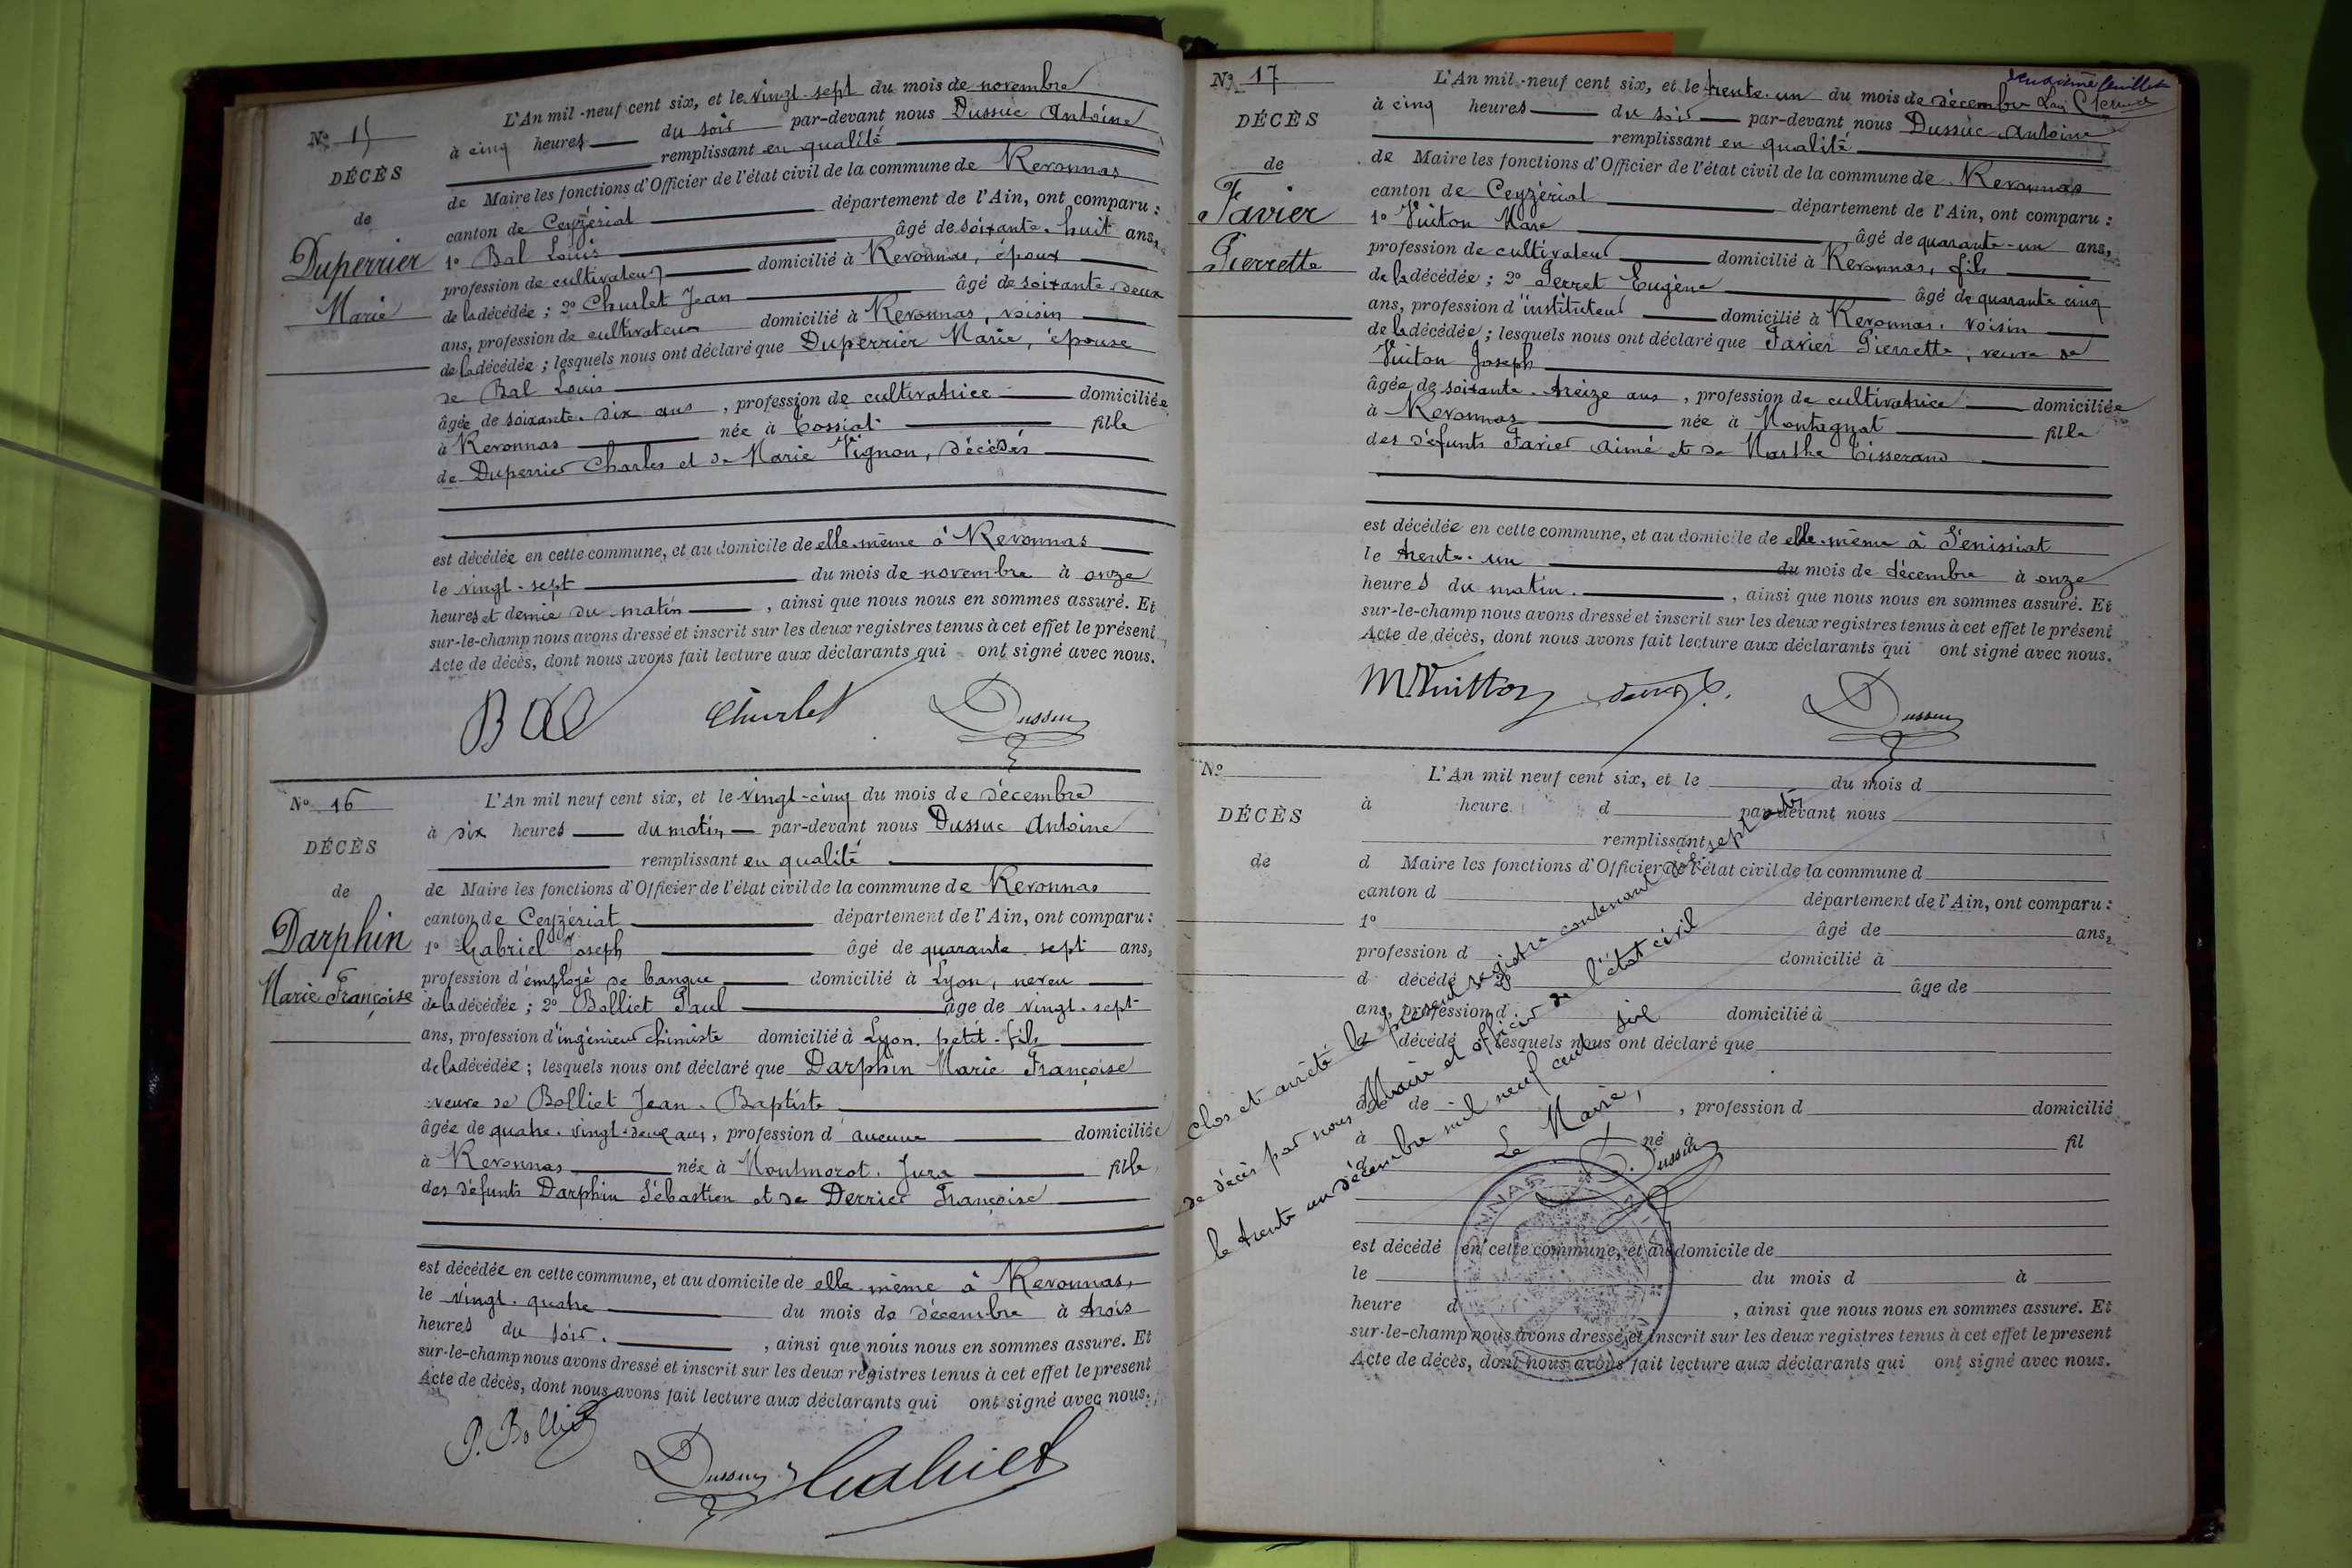 N° 15
DÉCÈS
de
Duperrier
Marie
L'An mil-neuf cent six, et le vingt-sept du mois de novembre
à cinq heures du soir par-devant nous Dussuc Antoine
remplissant en qualité
de Maire les fonctions d'Officier de l'état civil de la commune de Revonnas
canton de Ceyzériat département de l'Ain, ont comparu :
1° Bal Louis âgé de soixante-huit ans,
profession de cultivateur domicilié à Revonnas, époux
de la décédée ; 2° Churlet Jean âgé de soixante-deux
ans, profession de cultivateur domicilié à Revonnas, voisin
de la décédée ; lesquels nous ont déclaré que Duperrier Marie, épouse
de Bal Louis
âgée de soixante-dix ans, profession de cultivatrice domiciliée
à Revonnas née à Tossiat fille
de Duperrier Charles et de Marie Vignon, décédés
est décédée en cette commune, et au domicile de elle-même à Revonnas
le vingt-sept du mois de novembre à onze
heures et demie du matin, ainsi que nous nous en sommes assuré. Et
sur-le-champ nous avons dressé et inscrit sur les deux registres tenus à cet effet le présent
Acte de décès, dont nous avons fait lecture aux déclarants qui ont signé avec nous.
Bal Churlet Dussuc
N° 16
DÉCÈS
de
Darphin
Marie Françoise
L'An mil neuf cent six, et le vingt-cinq du mois de décembre
à dix heures du matin par-devant nous Dussuc Antoine
remplissant en qualité
de Maire les fonctions d'Officier de l'état civil de la commune de Revonnas
canton de Ceyzériat département de l'Ain, ont comparu :
1° Gabriel Joseph âgé de quarante-sept ans,
profession d'employé de banque domicilié à Lyon, neveu
de la décédée ; 2° Bolliet Paul âge de vingt-sept
ans, profession d'ingénieur chimiste domicilié à Lyon. petit-fils
de la décédée ; lesquels nous ont déclaré que Darphin Marie Françoise
veuve de Bolliet Jean-Baptiste
âgée de quatre-vingt-deux ans, profession d aucune domiciliée
à Revonnas née à Montmorot. Jura fille
des défunts Darphin Sébastien et de Derriec Françoise
est décédée en cette commune, et au domicile de elle-même à Revonnas,
le vingt-quatre du mois de décembre à trois
heures du soir. , ainsi que nous nous en sommes assuré. Et
sur-le-champ nous avons dressé et inscrit sur les deux registres tenus à cet effet le present
Acte de décès, dont nous avons fait lecture aux déclarants qui ont signé avec nous.
P. Bolliet
Dussuc Gabriel
deuxième feuillet
N° 17
DÉCÈS
de
Favier
Pierrette
L'An mil-neuf cent six, et le trente-un du mois de décembre
à cinq heures du soir par-devant nous Dussuc Antoine
remplissant en qualité
de Maire les fonctions d'Officier de l'état civil de la commune de Revonnas
canton de Ceyzériat département de l'Ain, ont comparu :
1° Vuiton Marc âgé de quarante-un ans,
profession de cultivateur domicilié à Revonnas, fils
de la décédée ; 2° Perret Eugène âgé de quarante cinq
ans, profession d'instituteur domicilié à Revonnas. voisin
de la décédée ; lesquels nous ont déclaré que Favier Pierrette, veuve de
Vuiton Joseph
âgée de soixante-treize ans, profession de cultivatrice domiciliée
à Revonnas née à Montagnat fille
des défunts Favier Aimé et de Marthe Tisserand
est décédée en cette commune, et au domicile de elle-même à Sénissiat
le trente-un du mois de décembre à onze
heures du matin. , ainsi que nous nous en sommes assuré. Et
sur-le-champ nous avons dressé et inscrit sur les deux registres tenus à cet effet le présent
Acte de décès, dont nous avons fait lecture aux déclarants qui ont signé avec nous.
M Vuitton Dussuc
N°
DÉCÈS
de
L'An mil neuf cent six, et le du mois d
à heure d par-devant nous
remplissant
d Maire les fonctions d'Officier de l'état civil de la commune d
canton d département de l'Ain, ont comparu :
1° âgé de ans,
profession d domicilié à
d décédé 2° âge de
ans, profession d domicilié à
d décédé lesquels nous ont déclaré que
âgé de , profession d domicilié
à né à fil
d
est décédé en cette commune, et au domicile de
le du mois d à
heure d , ainsi que nous nous en sommes assuré. Et
sur-le-champ nous avons dressé et inscrit sur les deux registres tenus à cet effet le present
Acte de décès, dont nous avons fait lecture aux déclarants qui ont signé avec nous.
Clos et arrêté le présent registre contenant dix sept actes
de décès par nous Maire et officier de l'état civil
le trente un décembre mil neuf cent six
Le Maire,
Dussuc